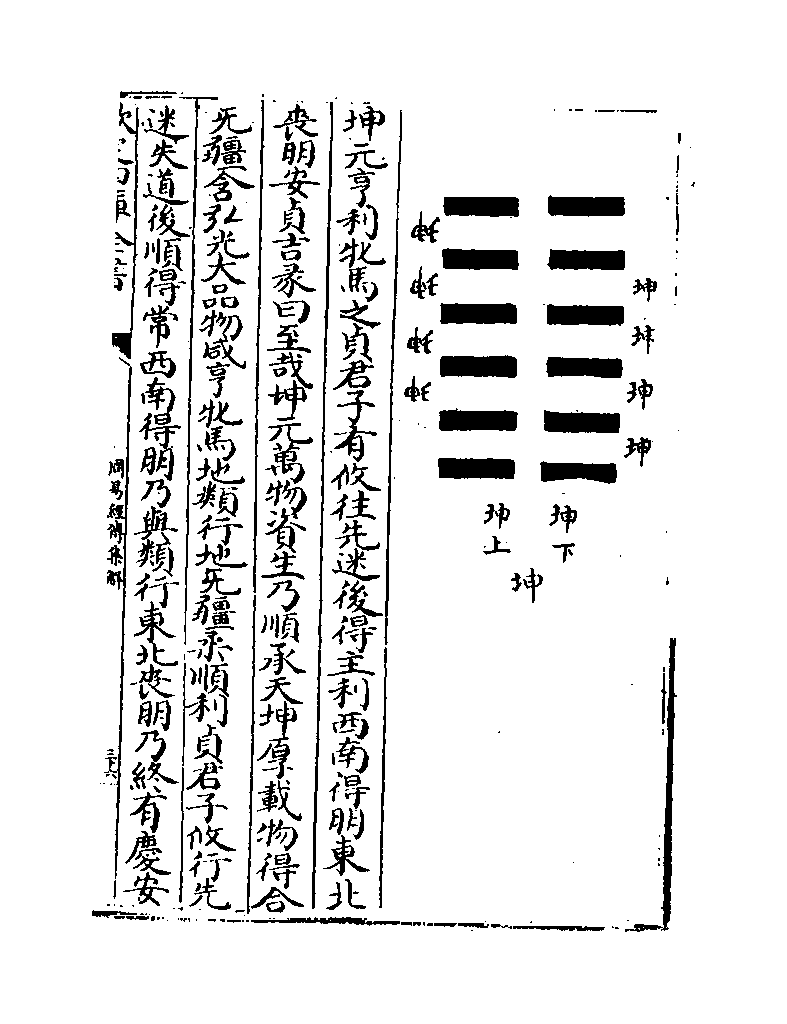 坤
坤
坤
坤
坤
坤
坤
坤
坤下
坤上
坤
坤元亨利牝馬之貞君子有攸往先迷後得主利西南得朋東北
喪朋安貞吉彖曰至哉坤元萬物資生乃順承天坤厚載物得合
无疆含弘光大品物咸亨牝馬地類行地无疆柔順利貞君子攸行先
迷失道後順得常西南得朋乃與類行東北喪朋乃終有慶安
欽定四庫全書
周易經傳集解
三十六